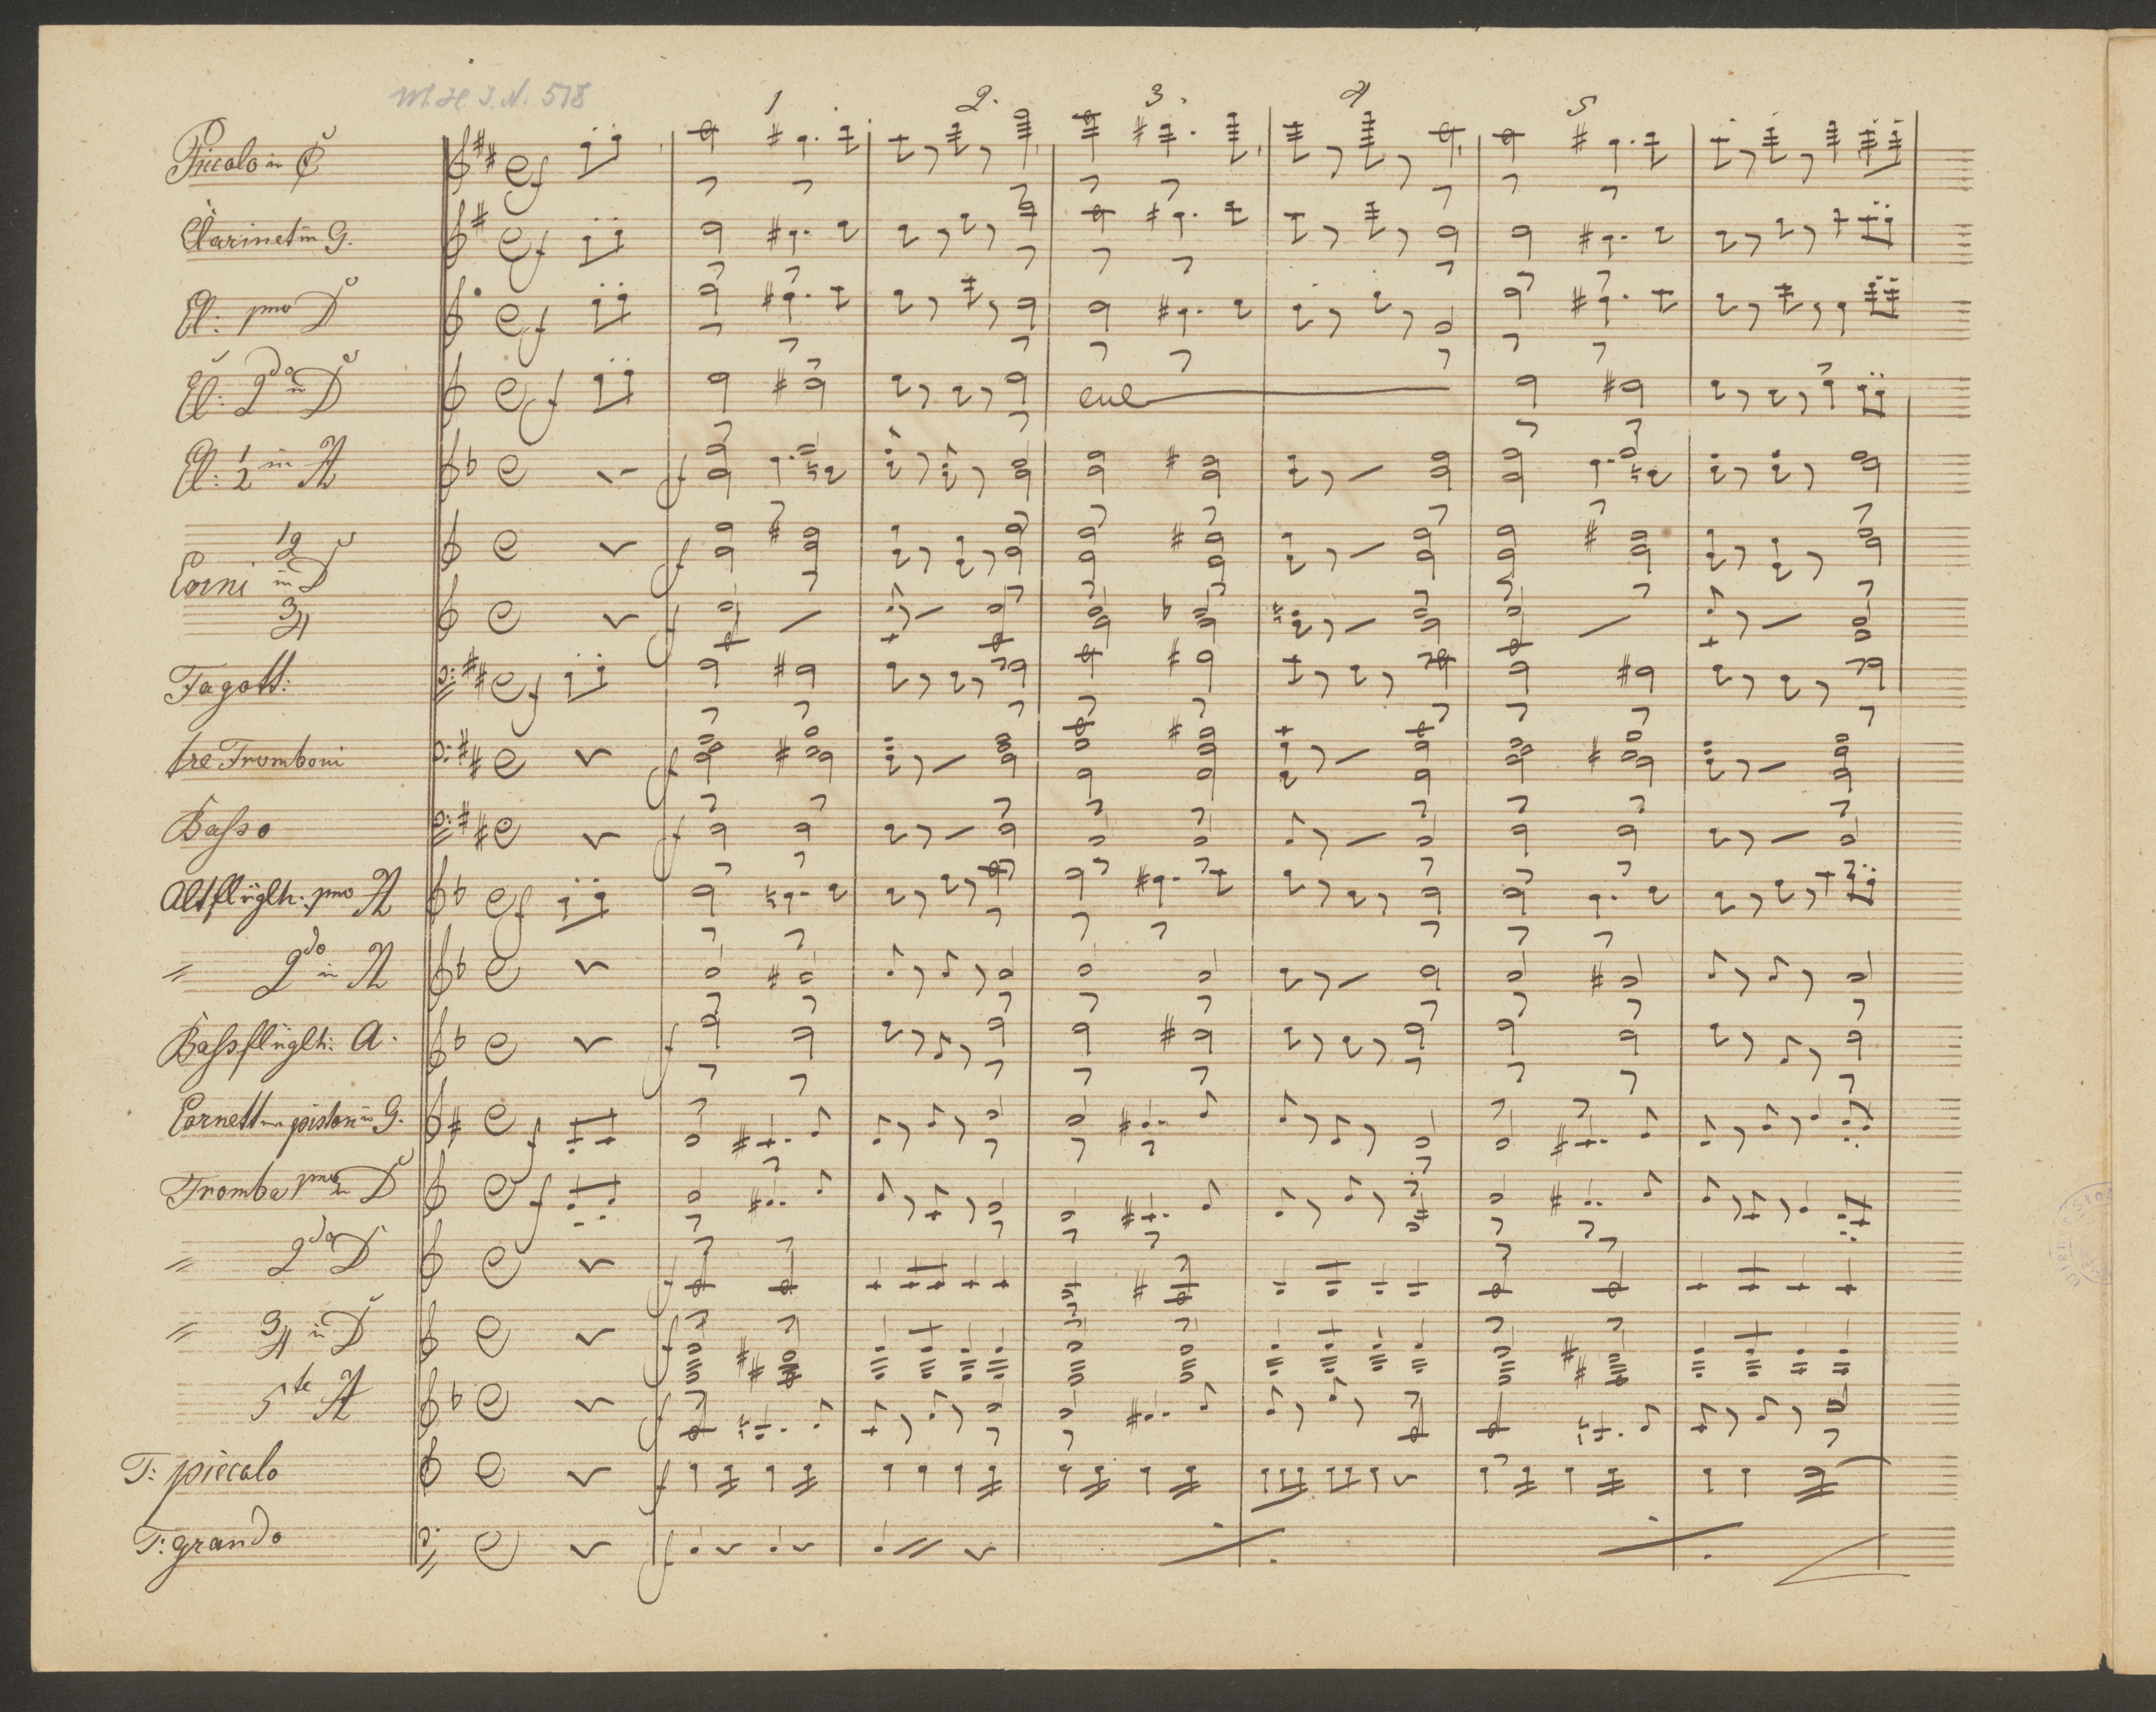 M H I.N. 518
1 2. 3. 4 5
Piccolo in C
Clarinet in G.
Cl: pmo D
Cl: 2do in D
Cl: 1 2 in A
12
Corni in D
34
Fagott:
tre Tromboni
Baſso
cul
Altflüglh: pmo A
" 2do in A
Baſsflüglh: A.
Cornett piston in G.
Tromba pmo in D
" 2do D
" 34 in D
5te A
T: piccolo
T: grando